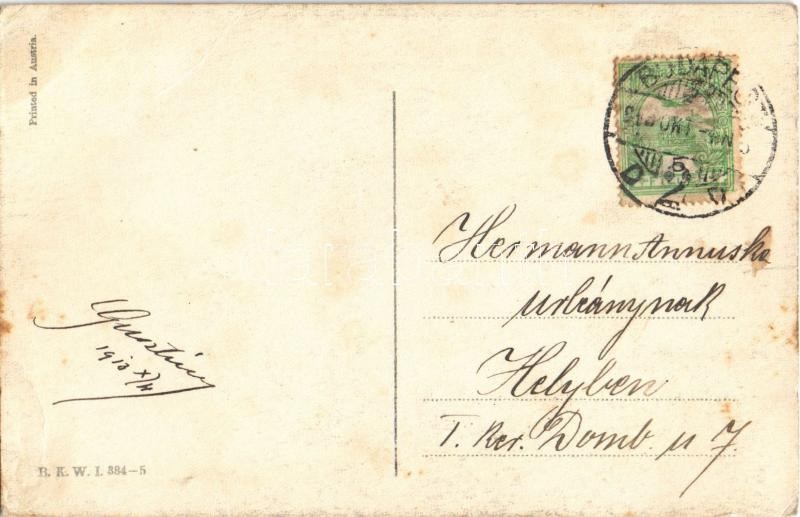 Printed in Austria.
BUDAPEST
5
Hermann Annuska
urleánynak
Helyben
I. ker. Domb u 7.
Gusztáv
1913 X/4
B. K. W. I. 384-5